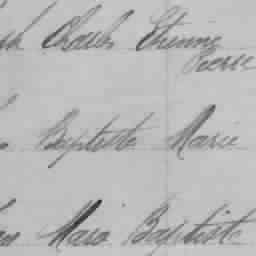 Charles Etienne
Pierre
Baptiste Marie
Marie Baptiste